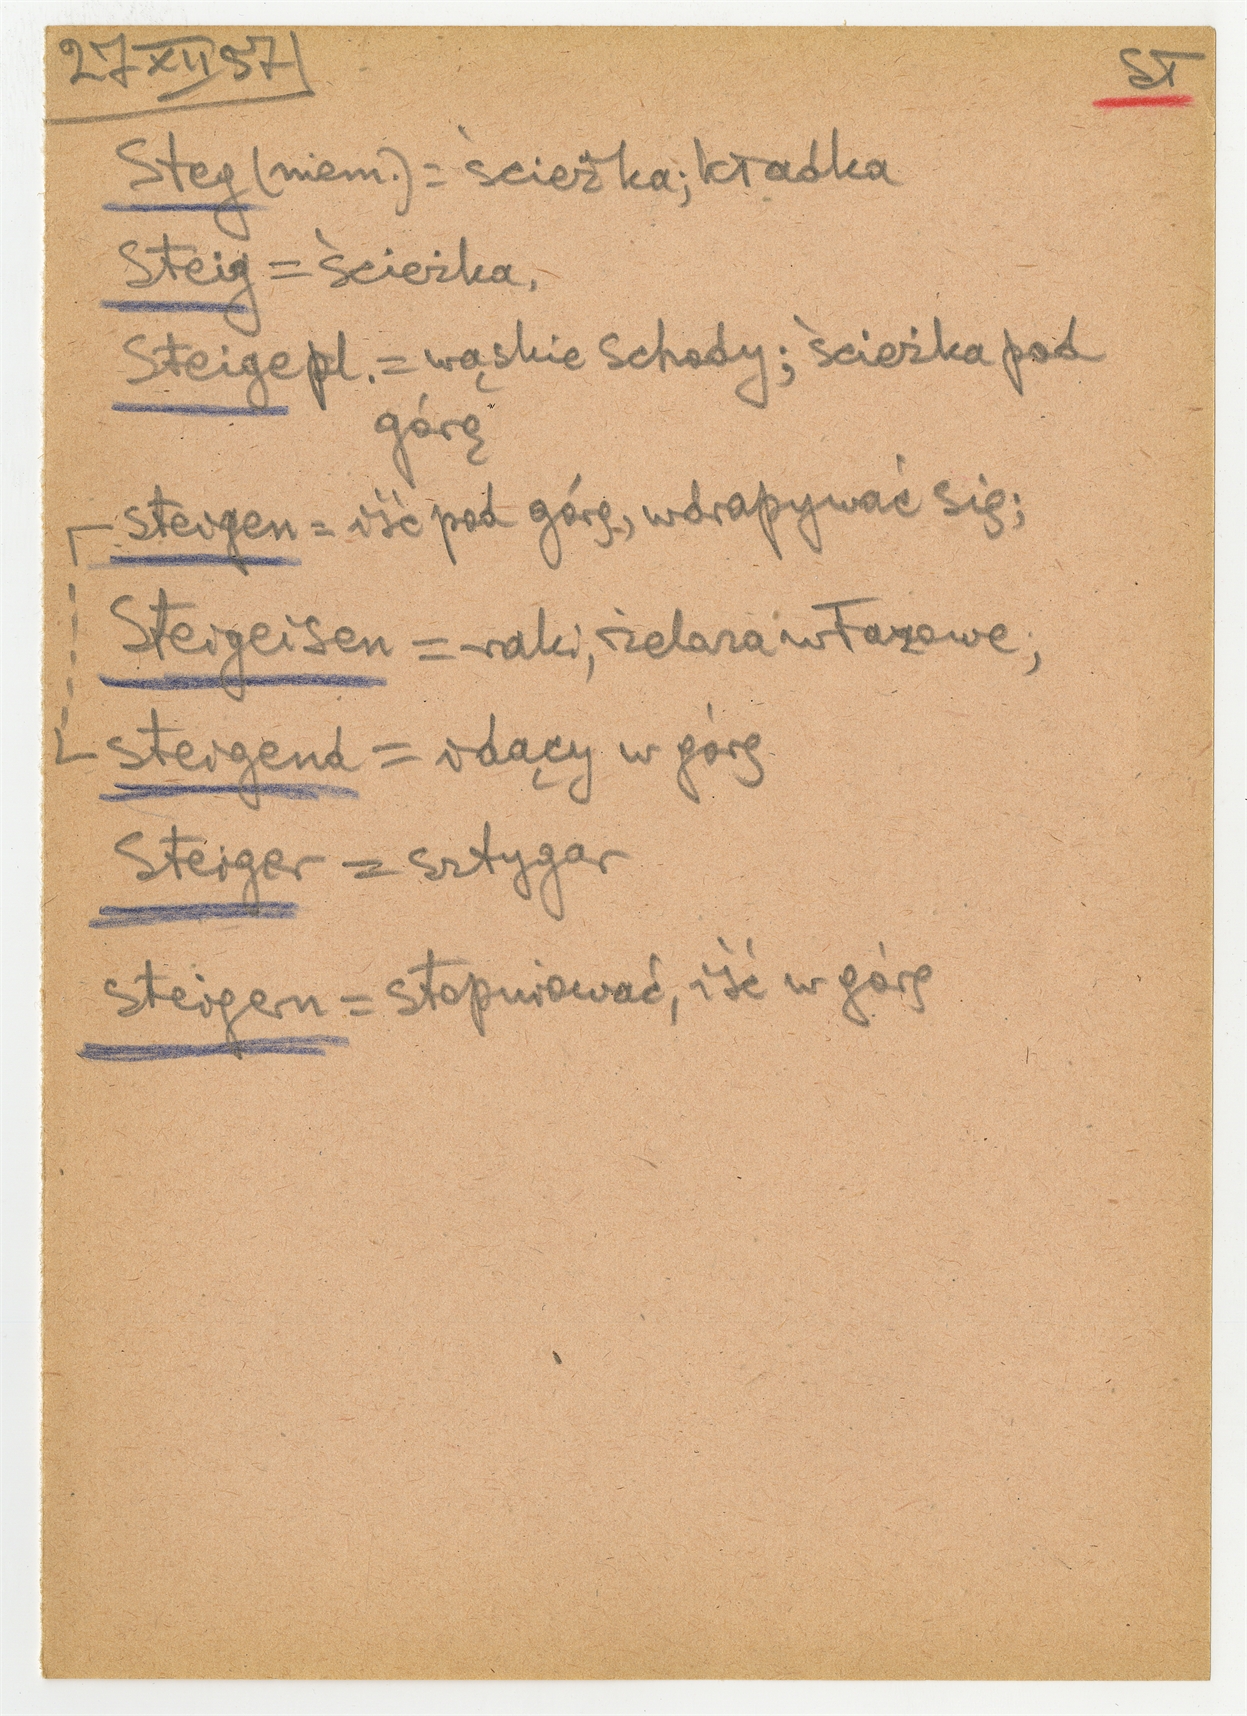 27 XII 57
ST
Steg (niem.) = ścieżka; kładka
Steig = ścieżka.
Steige pl. = wąskie schody; ścieżka pod
górę
steigen = iść pod górę, wdrapywać się;
Steigeisen = raki, żelaza włazowe;
steigend = idący w górę
Steiger = sztygar
steigern = stopniować, iść w górę